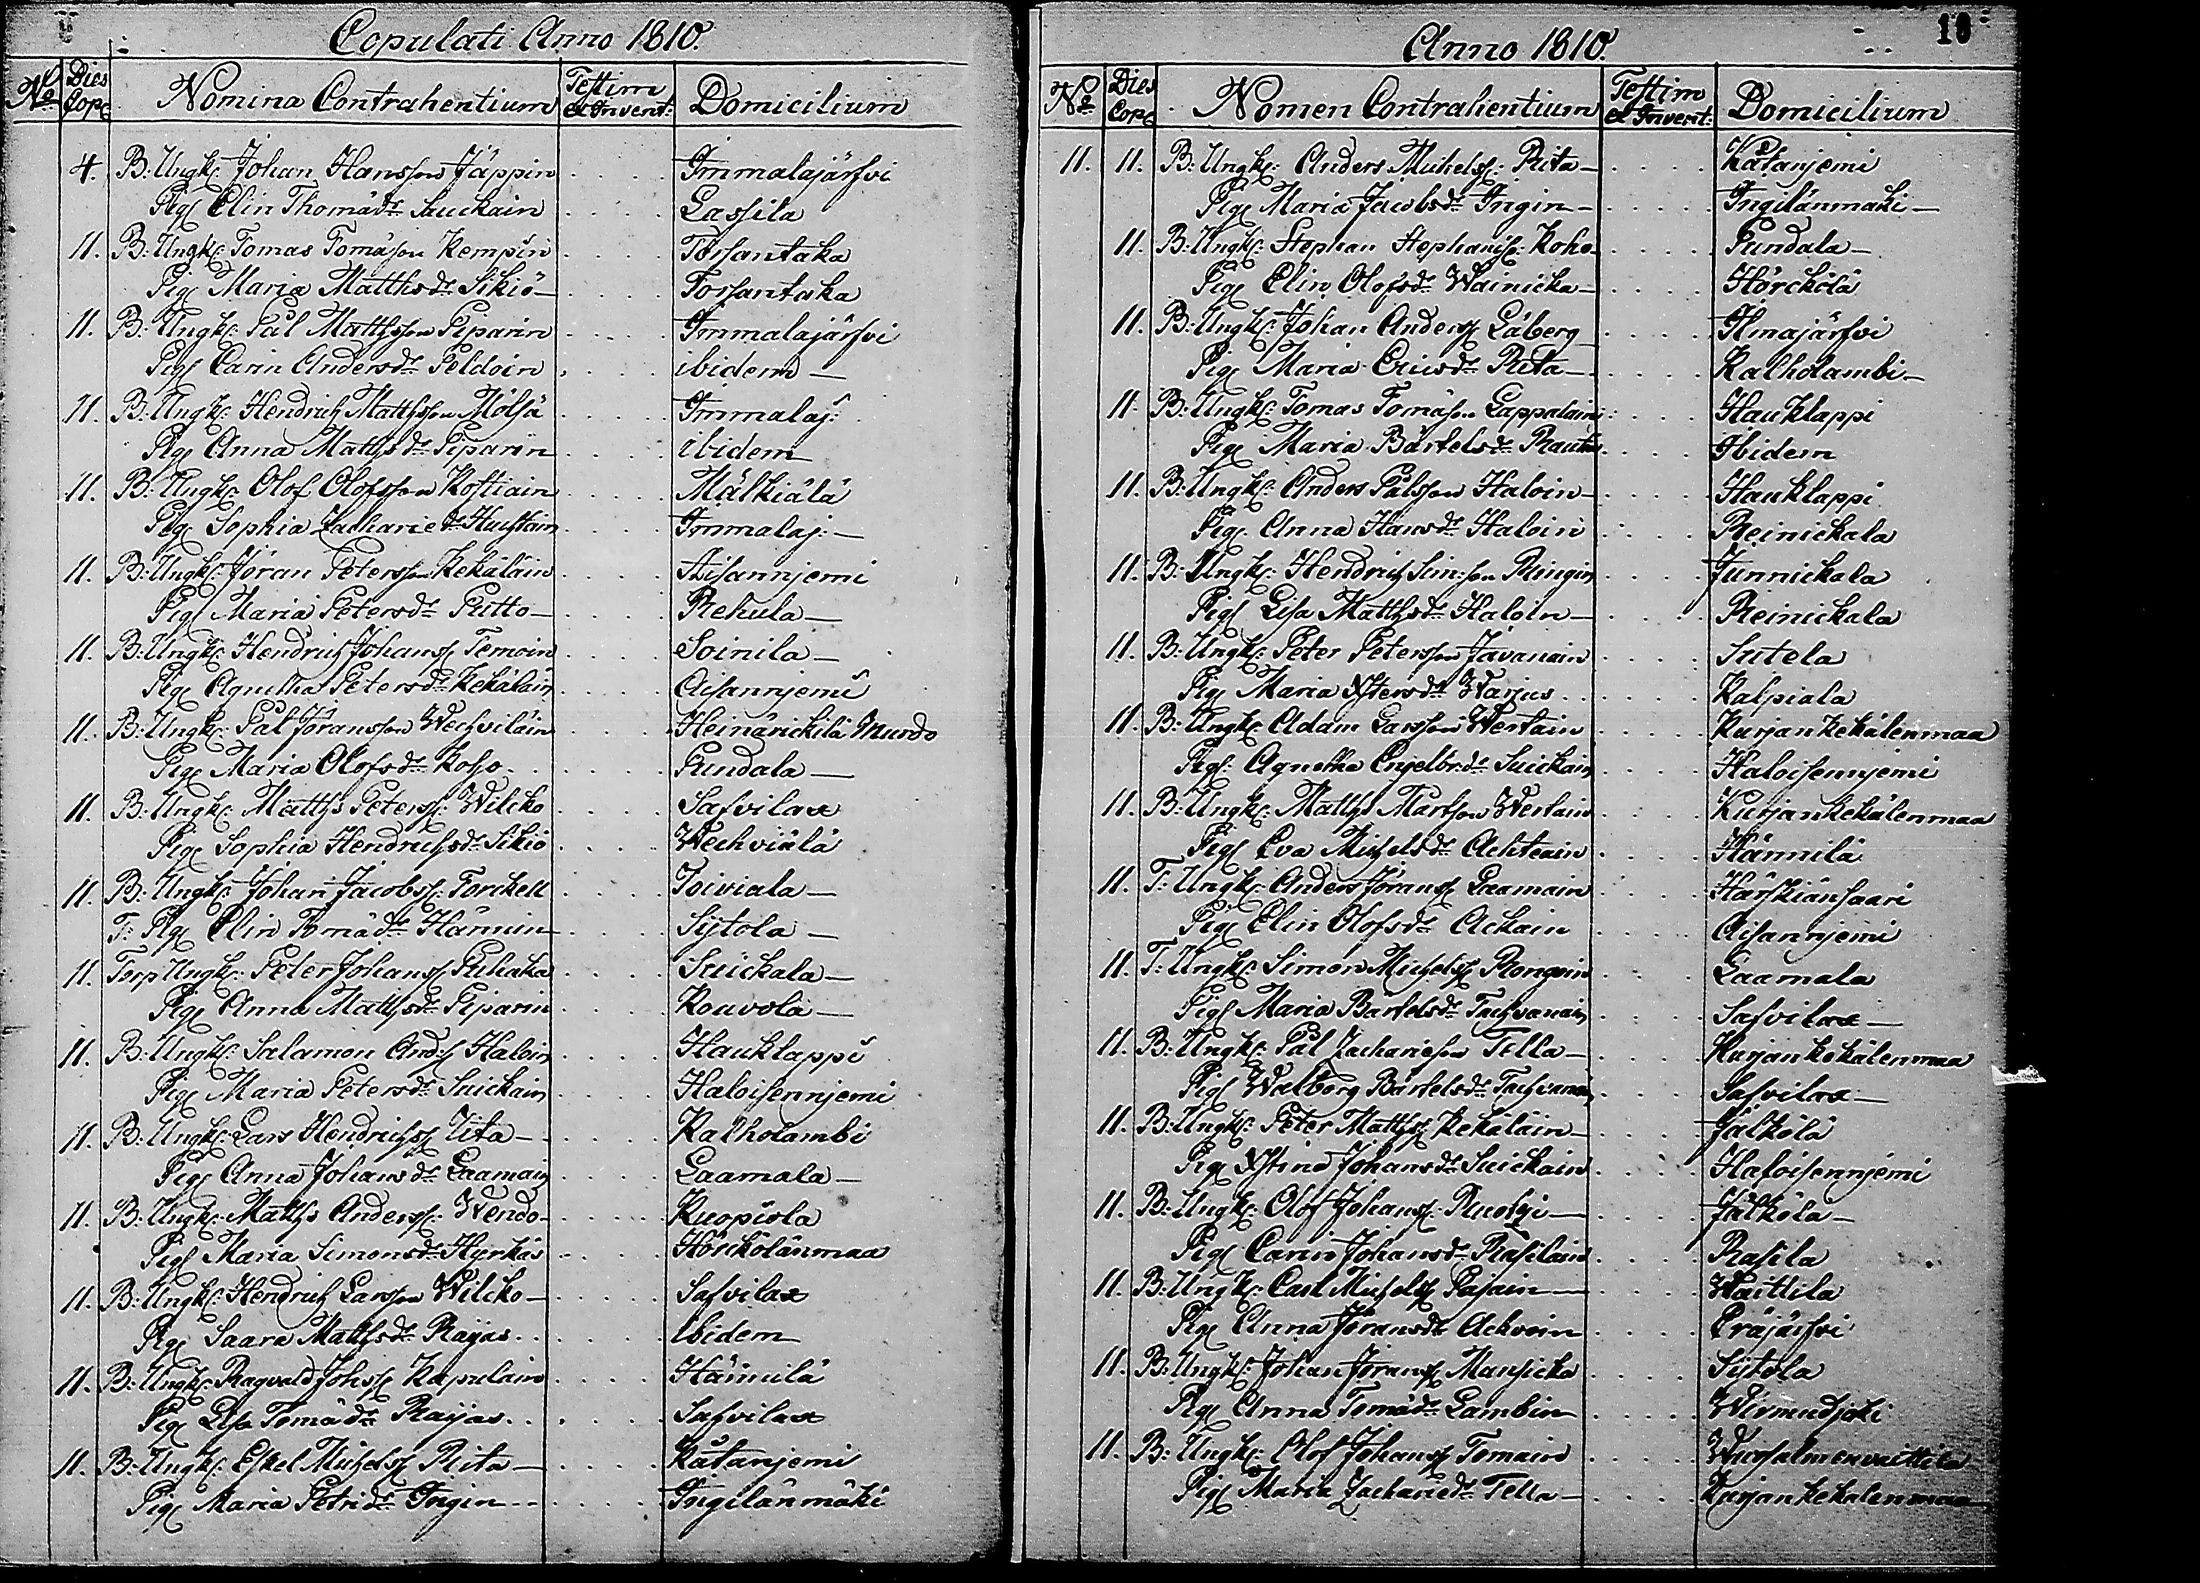 Copulati Anno 1810.
No Dies Cop: Nomina Contrahentium Testim et Invent: Domicilium
4. B: Ungk: Johan Hansson Jäppin Immalajärfvi
Pig: Elin Thomæd:r Suickain Lassila
11. B: Ungk: Tomas Tomasson Kempin Torsantaka
Pig: Maria Matthsd:r Sikiö Torsantaka
11. B: Ungk: Pål Matthsson Piparin Immalajärfvi
Pig: Carin Andersd:r Peldoin ibidem
11. B: Ungk: Hendrich Matthsson Mölsä Immalaj:
Pig: Anna Matthsd:r Piparin ibidem
11. B: Ungk: Olof Olofsson Kostiain Mälkiälä
Pig: Sophia Zachariæd:r Immalaj:
11. B: Ungk: Jöran Petersson Kekäläin Aisannjemi
Pig: Maria Petersd:r Putto Rehula
11. B: Ungk: Hendrich Johanss: Temoin Soinila
Pig: Agnetha Petersd:r Kekäläin Aisannjemi
11. B: Ungk: Pål Jöransson Wechviläin Heinärickilä Murdo
Pig: Maria Olofsd:r Koho Pundala
11. B: Ungk: Matths Peterss: Wilcko Safvilax
Pig: Sophia Hendrichsd:r Sikiö Wechviälä
11. B: Ungk: Johan Jacobss: Torckell Toiviala
T: Pig: Elin Tomæd:r Hännin Sijtola
11. Torp Ungk: Peter Johanss: Puhaka Suickala
Pig: Anna Matthsd:r Piparin Kouvola
11. B: Ungk: Salamon And:ss: Haloin Hauklappi
Pig: Maria Petersd:r Suickain Haloisennjemi
11. B: Ungk: Lars Hendrichss: Kalholambi
Pig: Anna Johansd:r Laamain Laamala
11. B: Ungk: Matths Anderss: Wendo Kuopiola
Pig: Maria Simonsd:r Hyrkäs Hörckölänmaa
11. B: Ungk: Hendrich Larsson Wilcko Safvilax
Pig: Saara Matthsd:r Raijas ibidem
11. B: Ungk: Ragvald Johss: Kapulain Hännilä
Pig: Lisa Tomæd:r Raijas Safvilax
11. B: Ungk: Eskel Michelss: Rita Kåtanjemi
Pig: Maria Petrid:r Ingin Ingilänmäki
Anno 1810. 10
No Dies Cop: Nomen Contrahentium Testim et Invent: Domicilium
11. 11. B: Ungk: Anders Michelss: Rita Kåtanjemi
Pig: Maria Jacobsd:r Ingin Ingilänmäki
11. B: Ungk: Stephan Stephanss: Koho Pundala
Pig: Elin Olofsd:r Wainicka Hörckölä
11. B: Ungk: Johan Anderss: Låberg Ilmajärfvi
Pig: Maria Ericsd:r Rita Kalholambi
11. B: Ungk: Tomas Tomasson Lappalain Hauklappi
Pig: Maria Bärtelsd:r Rautio Ibidem
11. B: Ungk: Anders Pålsson Haloin Hauklappi
Pig: Anna Hansd:r Haloin Reinickala
11. B: Ungk: Hendrich Simsson Ringin Junnickala
Pig: Lisa Matthsd:r Haloin Reinickala
11. B: Ungk: Peter Petersson Javanain Sutela
Pig: Maria Xstersd:r Warjus Kalpiala
11. B: Ungk: Adam Larsson Wertain Kurjankekälenmaa
Pig: Agnetha Engelbr:d:r Suickain Haloisennjemi
11. B: Ungk: Matths Martsson Wertain Kurjankekälenmaa
Pig: Eva Michelsd:r Achteain Hännilä
11. T: Ungk: Anders Jöranss: Laamain Härskiänsaari
Pig: Elin Olofsd:r Ackain Aisannjemi
11. T: Ungk: Simon Michelss: Rongain Laamala
Pig: Maria Bärtelsd:r Tachvanain Safvilax
11. B: Ungk: Pål Zachariæson Tella Kurjankekälenmaa
Pig: Walborg Bärtelsd:r Tachvanain Safvilax
11. B: Ungk: Peter Matthss: Kekäläin Jälkölä
Pig: Xstina Johansd:r Suickain Haloisennjemi
11. B: Ungk: Olof Johanss: Jälkölä
Pig: Carin Johansd:r Rasilain Rasila
11. B: Ungk: Carl Michelss: Pasain Waittila
Pig: Anna Jöransd:r Ackvoin Eräjärfvi
11. B: Ungk: Johan Jöranss: Mansicka Sijtola
Pig: Anna Tomæd:r Lambin Wirmudjoki
11. B: Ungk: Olof Johanss: Tomain
Pig: Maria Zachariæd:r Tella Kurjankekälenmaa